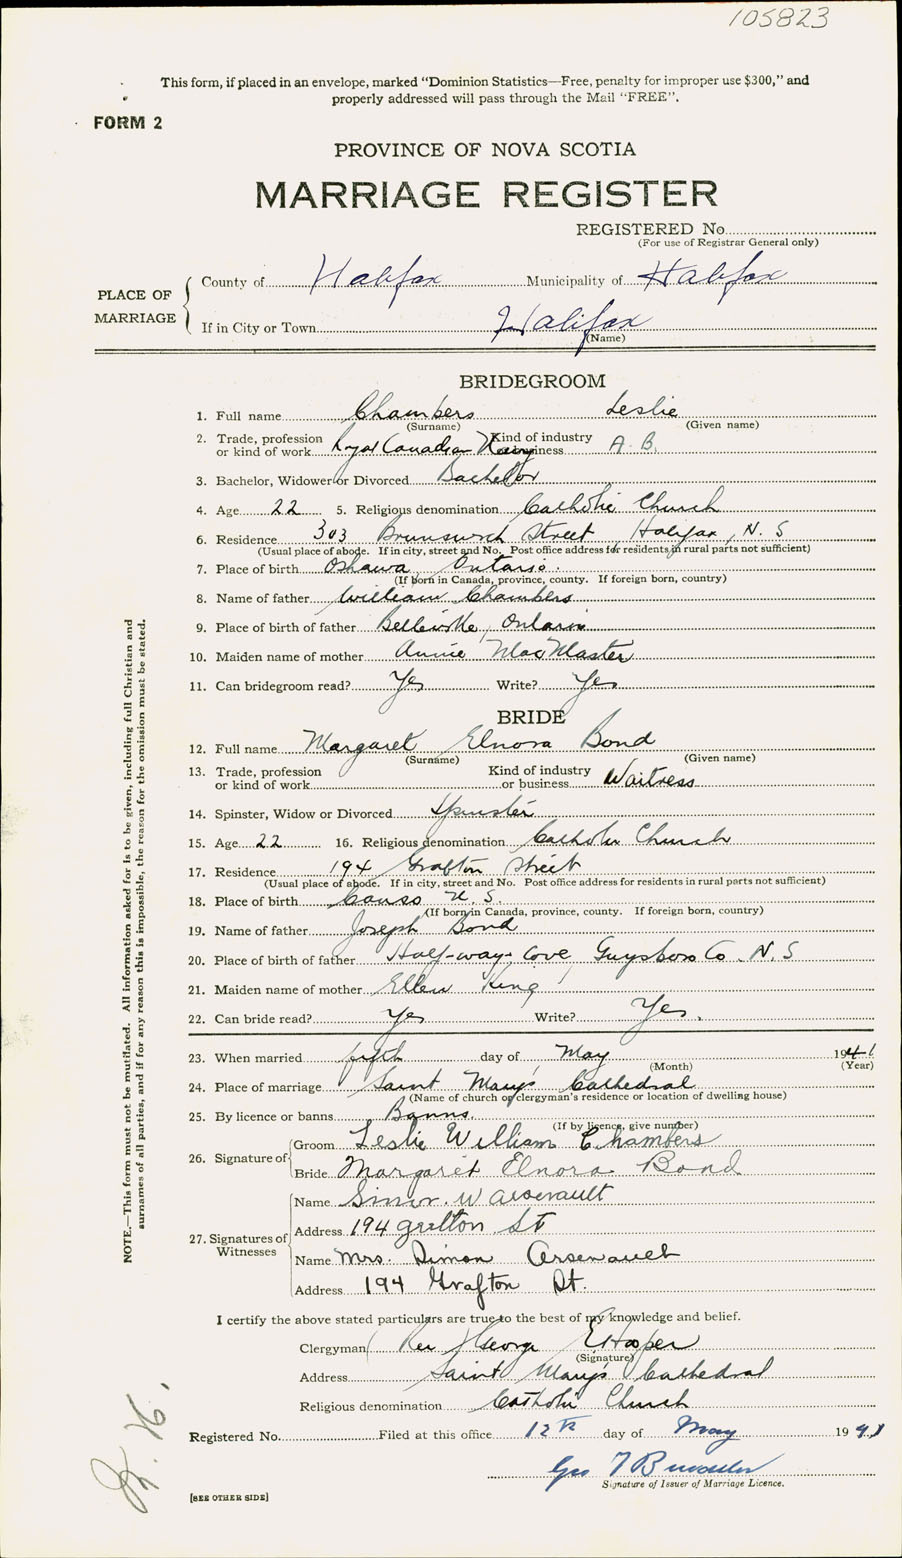 105823
This form, if placed in an envelope, marked “Dominion Statistics—Free, penalty for improper use $300,” and
properly addressed will pass through the Mail “FREE”.
FORM 2
PROVINCE OF NOVA SCOTIA
MARRIAGE REGISTER
REGISTERED No.
(For use of Registrar General only)
PLACE OF MARRIAGE
County of Halifax Municipality of Halifax
If in City or Town Halifax
(Name)
BRIDEGROOM
1. Full name Chambers Leslie
(Surname) (Given name)
2. Trade, profession or kind of work Royal Canadian Navy Kind of industry or business A. B.
3. Bachelor, Widower or Divorced Bachelor
4. Age 22 5. Religious denomination Catholic Church
6. Residence 303 Brunswick Street, Halifax, N. S
(Usual place of abode. If in city, street and No. Post office address for residents in rural parts not sufficient)
7. Place of birth Oshawa Ontario.
(If born in Canada, province, county. If foreign born, country)
8. Name of father William Chambers
9. Place of birth of father Belleville, Ontario
10. Maiden name of mother Annie MacMaster
11. Can bridegroom read? Yes Write? Yes
BRIDE
12. Full name Margaret Elnora Bond
(Surname) (Given name)
13. Trade, profession or kind of work Kind of industry or business Waitress
14. Spinster, Widow or Divorced Spinster
15. Age 22 16. Religious denomination Catholic Church
17. Residence 194 Grafton Street
(Usual place of abode. If in city, street and No. Post office address for residents in rural parts not sufficient)
18. Place of birth Canso N. S.
(If born in Canada, province, county. If foreign born, country)
19. Name of father Joseph Bond
20. Place of birth of father Half-way-Cove, Guysboro Co. N. S
21. Maiden name of mother Ellen King
22. Can bride read? Yes Write? Yes.
23. When married fifth day of May 1941
(Month) (Year)
24. Place of marriage Saint Mary's Cathedral
(Name of church or clergyman's residence or location of dwelling house)
25. By licence or banns Banns
(If by licence, give number)
26. Signature of Groom Leslie William Chambers
Bride Margaret Elnora Bond
27. Signatures of Witnesses
Name Simon. W Arsenault
Address 194 Grafton St
Name Mrs. Simon Arsenault
Address 194 Grafton St.
I certify the above stated particulars are true to the best of my knowledge and belief.
Clergyman Rev George Hooper
(Signature)
Address Saint Mary's Cathedral
Religious denomination Catholic Church
Registered No. Filed at this office 12th day of May 1941
Geo
Signature of Issuer of Marriage Licence.
[SEE OTHER SIDE]
NOTE.—This form must not be mutilated. All information asked for is to be given, including full Christian and
surnames of all parties, and if for any reason this is impossible, the reason for the omission must be stated.